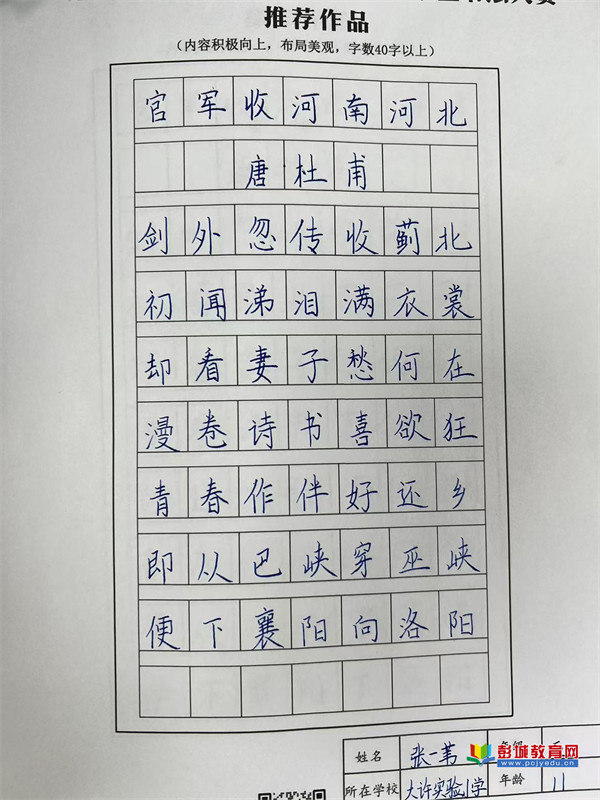 推荐作品
（内容积极向上，布局美观，字数40字以上）
官军收河南河北
唐杜甫
剑外忽传收蓟北
初闻涕泪满衣裳
却看妻子愁何在
漫卷诗书喜欲狂
青春作伴好还乡
即从巴峡穿巫峡
便下襄阳向洛阳
姓名 张一苇
所在学校 大许实验小学 年龄 11
彭城教育网
www.pcjyedu.cn